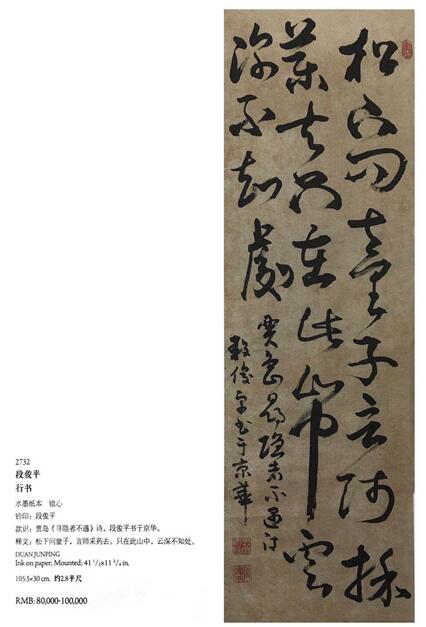 松下问童子言师採
药去只在此山中雲
深不知處
賈島尋隱者不遇诗
段俊平书于京華
2732
段俊平
行书
水墨纸本 镜心
钤印：段俊平
款识：贾岛《寻隐者不遇》诗，段俊平书于京华。
释文：松下问童子，言师采药去。只在此山中，云深不知处。
DUAN JUNPING
Ink on paper; Mounted; 41 1/2×11 3/4 in.
105.5×30 cm. 约2.8平尺
RMB: 80,000-100,000